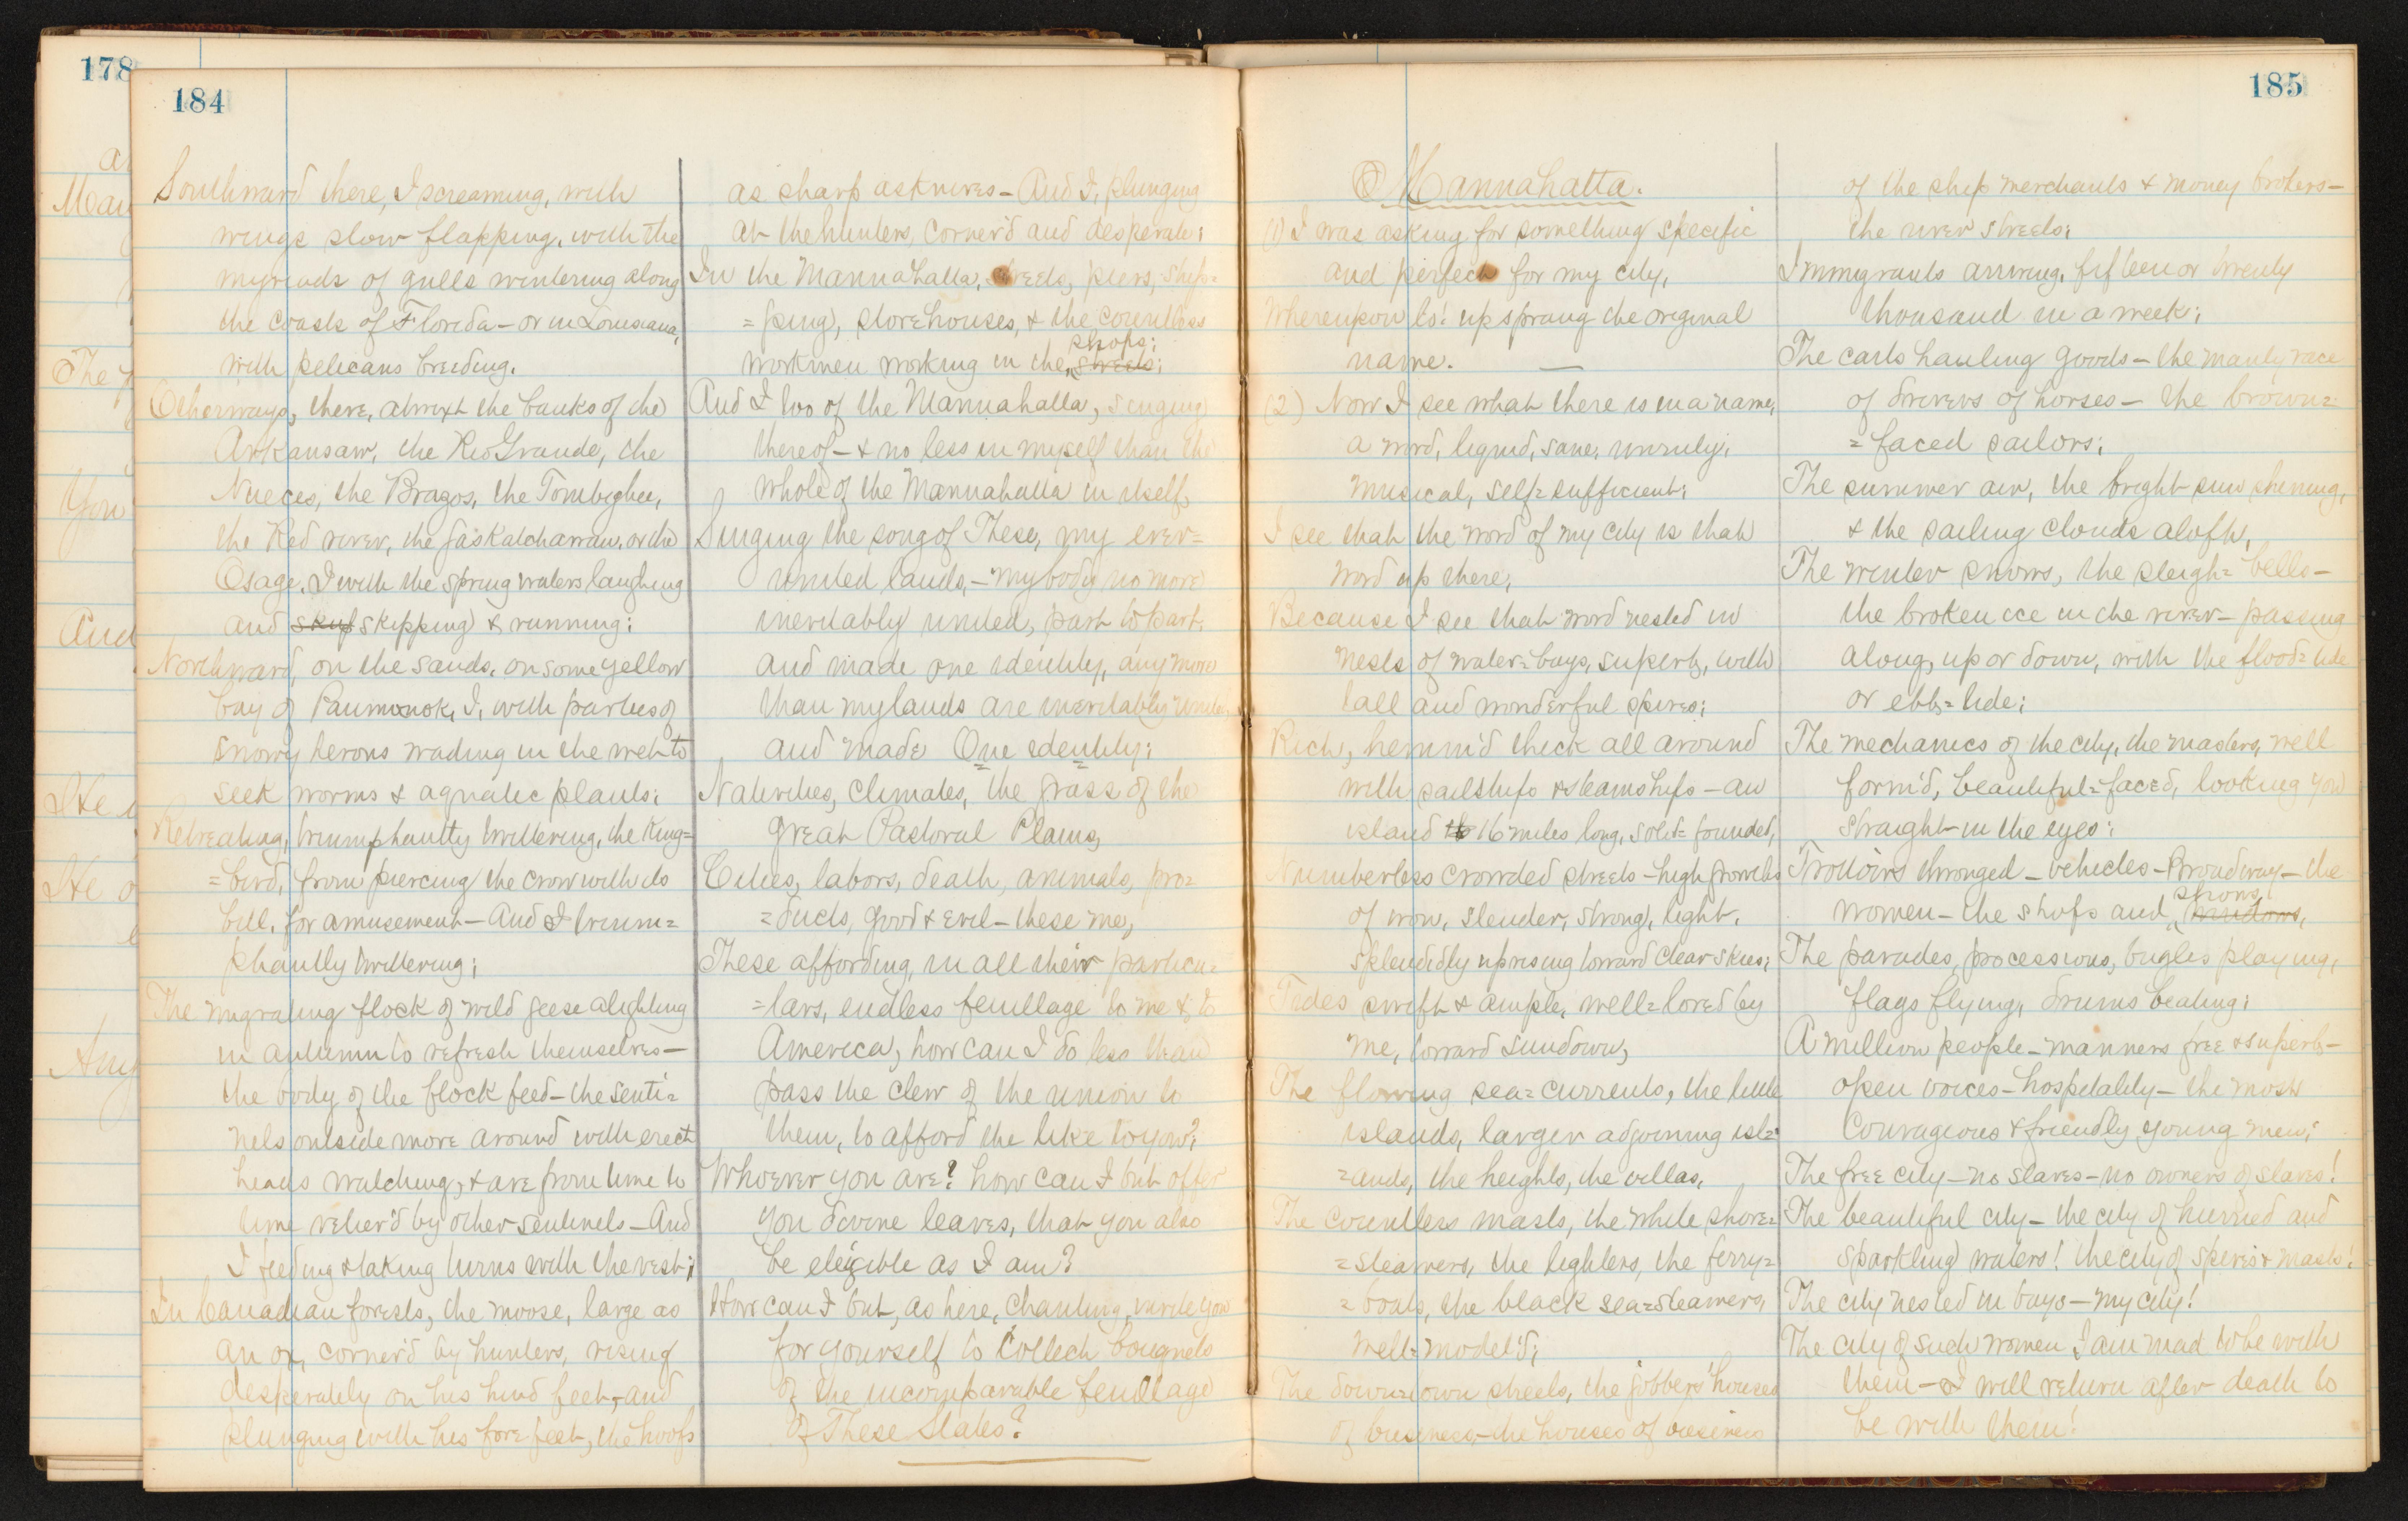 178
184
Southward there, I screaming, with
wings slow flapping, with the
myriads of gulls wintering along
the coasts of Florida – or in Louisiana,
with pelicans breeding.
Otherways, there, atwixt the banks of the
Arkansaw, the Rio Grande, the
Nueces, the Brazos, the Tombigbee,
the Red river, the Saskatchawan, or the
Osage, I with the spring waters laughing
and skip skipping & running;
Northward, on the sands, on some yellow
bay of Paumonok, I, with parties of
snowy herons wading in the wet to
seek worms & aquatic plants;
Retreating, triumphantly twittering, the King=
=bird, from piercing the crow with its
bill, for amusement – And I trium=
phantly twittering;
The migrating flock of wild geese alighting
in autumn to refresh themselves –
the body of the flock feed – the senti=
nels outside move around with erect
heads watching, & are from time to
time reliev'd by other sentinels – And
I feeding & taking turns with the rest;
In Canadian forests, the moose, large as
an ox, corner'd by hunters, rising
desperately on his hind feet, and
plunging with his fore feet, the hoofs
as sharp as knives – And I, plunging
at the hunters, corner'd and desperate;
In the Mannahatta, streets, piers, ship=
=ping, storehouses, & the countless
workmen working in the streets; shops;
And I too of the Mannahatta, singing
thereof – & no less in myself than the
whole of the Mannahatta in itself,
Singing the song of These, my ever=
united lands, – my body no more
inevitably united, part to part,
and made one identity, any more
than my lands are inevitably united,
and made One identity;
Nativities, climates, the grass of the
great Pastoral Plains,
Cities, labors, death, animals, pro=
=ducts, good & evil – these me,
These affording, in all their particu=
=lars, endless feuillage to me & to
America, how can I do less than
pass the clew of the union to
them, to afford the like to you?
Whoever you are? how can I but offer
you divine leaves, that you also
be eligible as I am?
How can I but, as here, chanting, invite you
for yourself to collect bouquets
of the incomparable feuillage
of These States?
185
Mannahatta.
(1) I was asking for something specific
and perfect for my city,
Whereupon lo! upsprang the original
name. —
(2) Now I see what there is in a name,
a word, liquid, sane, unruly,
musical, self=sufficient;
I see that the word of my city is that
word up there,
Because I see that word nested in
nests of water=bays, superb, with
tall and wonderful spires;
Rich, hemm'd thick all around
with sailships & steamships – an
island 16 miles long, solid=founded,
Numberless crowded streets – high growths
of iron, slender, strong, light,
splendidly uprising toward clear skies;
Tides swift & ample, well=loved by
me, toward sundown,
The flowing sea=currents, the little
islands, larger adjoining isl=
=ands, the heights, the villas,
The countless masts, the white shore=
=steamers, the lighters, the ferry=
=boats, the black sea=steamers,
well=model'd;
The down=town streets, the jobbers' houses
of business, – the houses of business
of the ship merchants & money brokers –
the river streets;
Immigrants arriving, fifteen or twenty
thousand in a week;
The carts hauling goods – the manly race
of drivers of horses – the brown=
=faced sailors;
The summer air, the bright sun shining,
& the sailing clouds aloft,
The winter snows, the sleigh=bells –
the broken ice in the river – passing
along, up or down, with the flood=tide
or ebb=tide;
The mechanics of the city, the masters, well
form'd, beautiful=faced, looking you
straight in the eyes;
Trottoirs thronged – vehicles – Broadway – the
women – the shops and shows,
The parades, processions, bugles playing,
flags flying, drums beating;
A million people – manners free & superb –
open voices – hospitality – the most
courageous & friendly young men;
The free city – no slaves – no owners of slaves!
The beautiful city – the city of hurried and
sparkling waters! the city of spires & masts!
The city nested in bays – my city!
The city of such women I am mad to be with
them – I will return after death to
be with them!